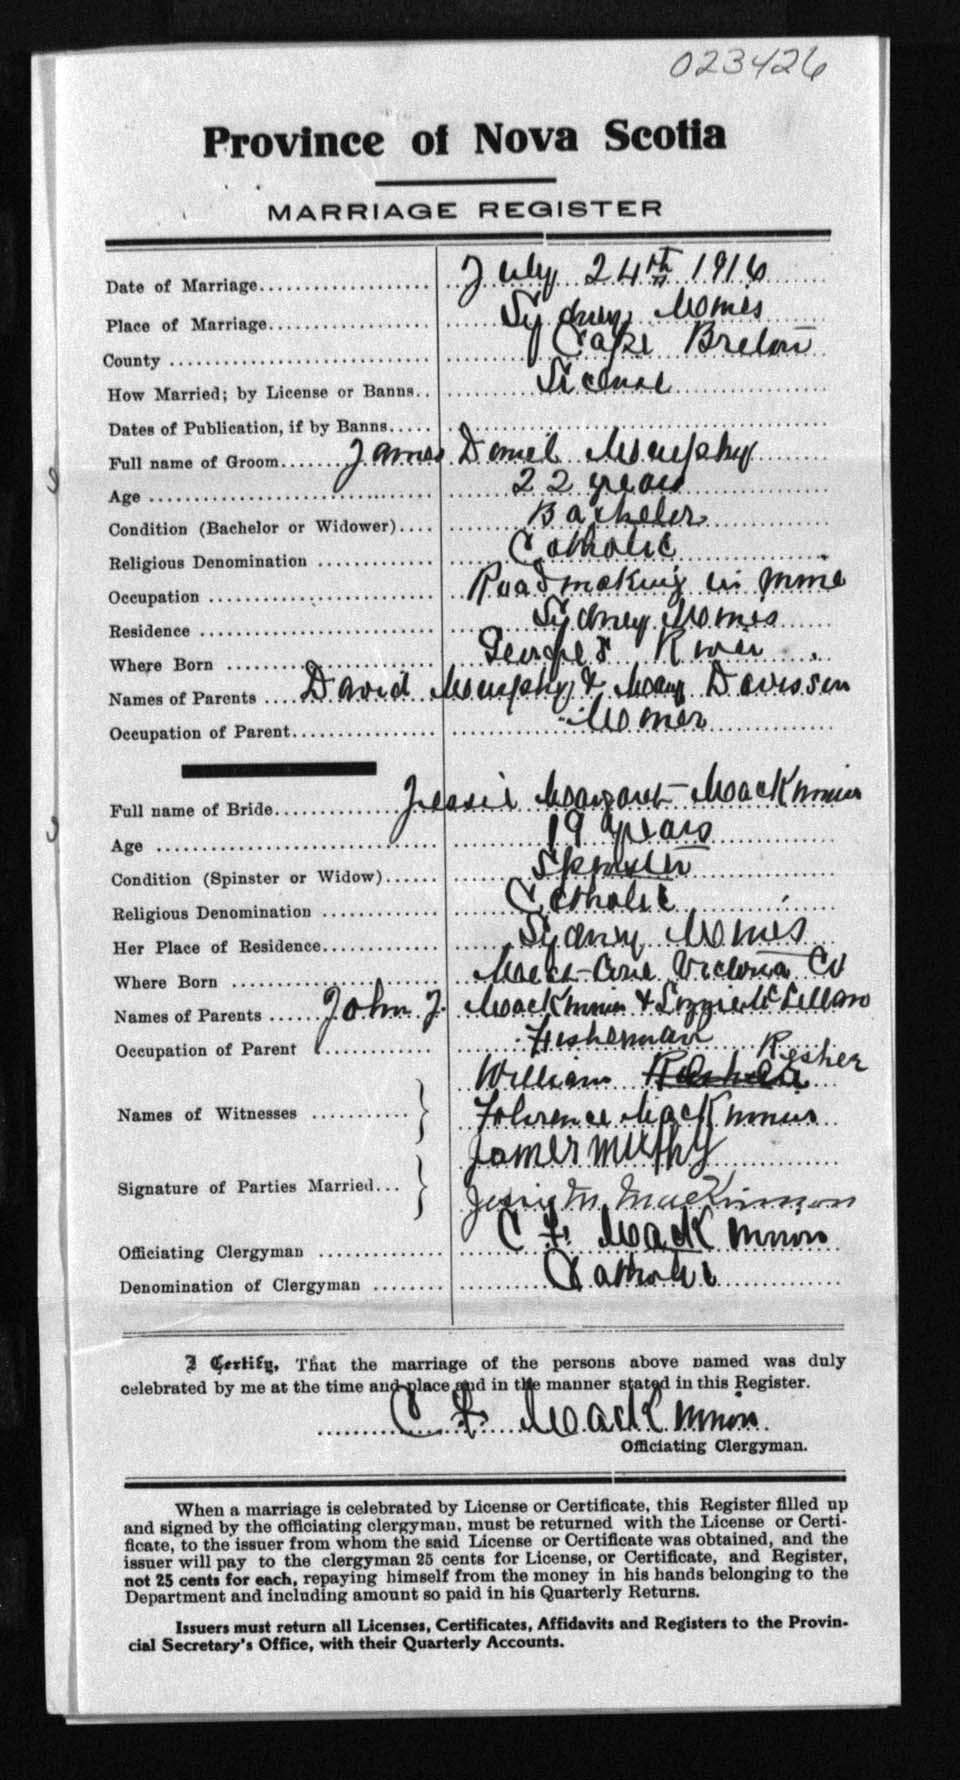 023426
Province of Nova Scotia
MARRIAGE REGISTER
Date of Marriage................... July 24th 1916
Place of Marriage.................. Sydney Mines
County ............................ Cape Breton
How Married; by License or Banns.. License
Dates of Publication, if by Banns.....
Full name of Groom...... James Daniel Murphy
Age ............................... 22 years
Condition (Bachelor or Widower).... Bachelor
Religious Denomination ............. Catholic
Occupation ......................... Road making in mine
Residence .......................... Sydney Mines
Where Born ........................ Georges River
Names of Parents .... David Murphy & Mary Davisson
Occupation of Parent................ Miner
Full name of Bride............ Jessie Margaret MacKinnon
Age ............................... 19 years
Condition (Spinster or Widow)...... Spinster
Religious Denomination ............ Catholic
Her Place of Residence............. Sydney Mines
Where Born ....................... Victoria Co
Names of Parents ...... John J. MacKinnon & Lizzie McLellan
Occupation of Parent Fisherman
William Kesher
Names of Witnesses ........... } Florence MacKinnon
James Murphy
Signature of Parties Married... } Jessie M. MacKinnon
Officiating Clergyman ............. C F MacKinnon
Denomination of Clergyman ........ Catholic
I Certify, That the marriage of the persons above named was duly
celebrated by me at the time and place and in the manner stated in this Register.
C F MacKinnon
Officiating Clergyman.
When a marriage is celebrated by License or Certificate, this Register filled up
and signed by the officiating clergyman, must be returned with the License or Certi-
ficate, to the issuer from whom the said License or Certificate was obtained, and the
issuer will pay to the clergyman 25 cents for License, or Certificate, and Register,
not 25 cents for each, repaying himself from the money in his hands belonging to the
Department and including amount so paid in his Quarterly Returns.
Issuers must return all Licenses, Certificates, Affidavits and Registers to the Provin-
cial Secretary's Office, with their Quarterly Accounts.